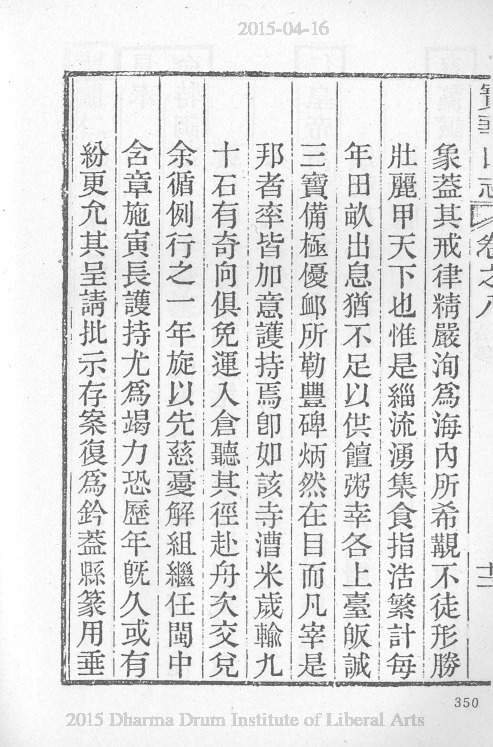 2015-04-16
寶華山志 卷之八 十二
象蓋其戒律精嚴洵為海內所希覯不徒形勝
壯麗甲天下也惟是緇流湧集食指浩繁計每
年田畝出息猶不足以供饘粥幸各上臺皈誠
三寶備極優卹所勒豐碑炳然在目而凡宰是
邦者率皆加意護持焉卽如該寺漕米歲輸九
十石有奇向俱免運入倉聽其徑赴舟次交兌
余循例行之一年旋以先慈憂解組繼任閩中
含章施寅長護持尤為竭力恐歷年旣久或有
紛更允其呈請批示存案復為鈐蓋縣篆用垂
350
2015 Dharma Drum Institute of Liberal Arts